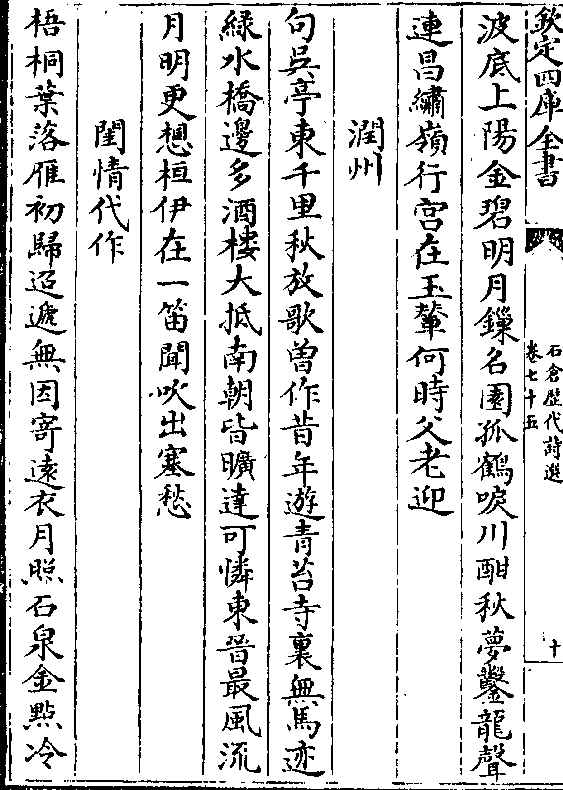 欽定四庫全書
石倉歷代詩選
卷七十五
十
波底上陽金碧明月鏁名園孤鶴唳川酣秋夢鑿龍聲
連昌繡嶺行宫在玉輦何時父老迎
潤州
句吳亭東千里秋放歌曾作昔年遊青苔寺裏無馬迹
綠水橋邊多酒樓大抵南朝皆曠達可憐東晉最風流
月明更想桓伊在一笛聞吹出塞愁
閨情代作
梧桐葉落雁初歸迢遞無因寄遠衣月照石泉金點冷